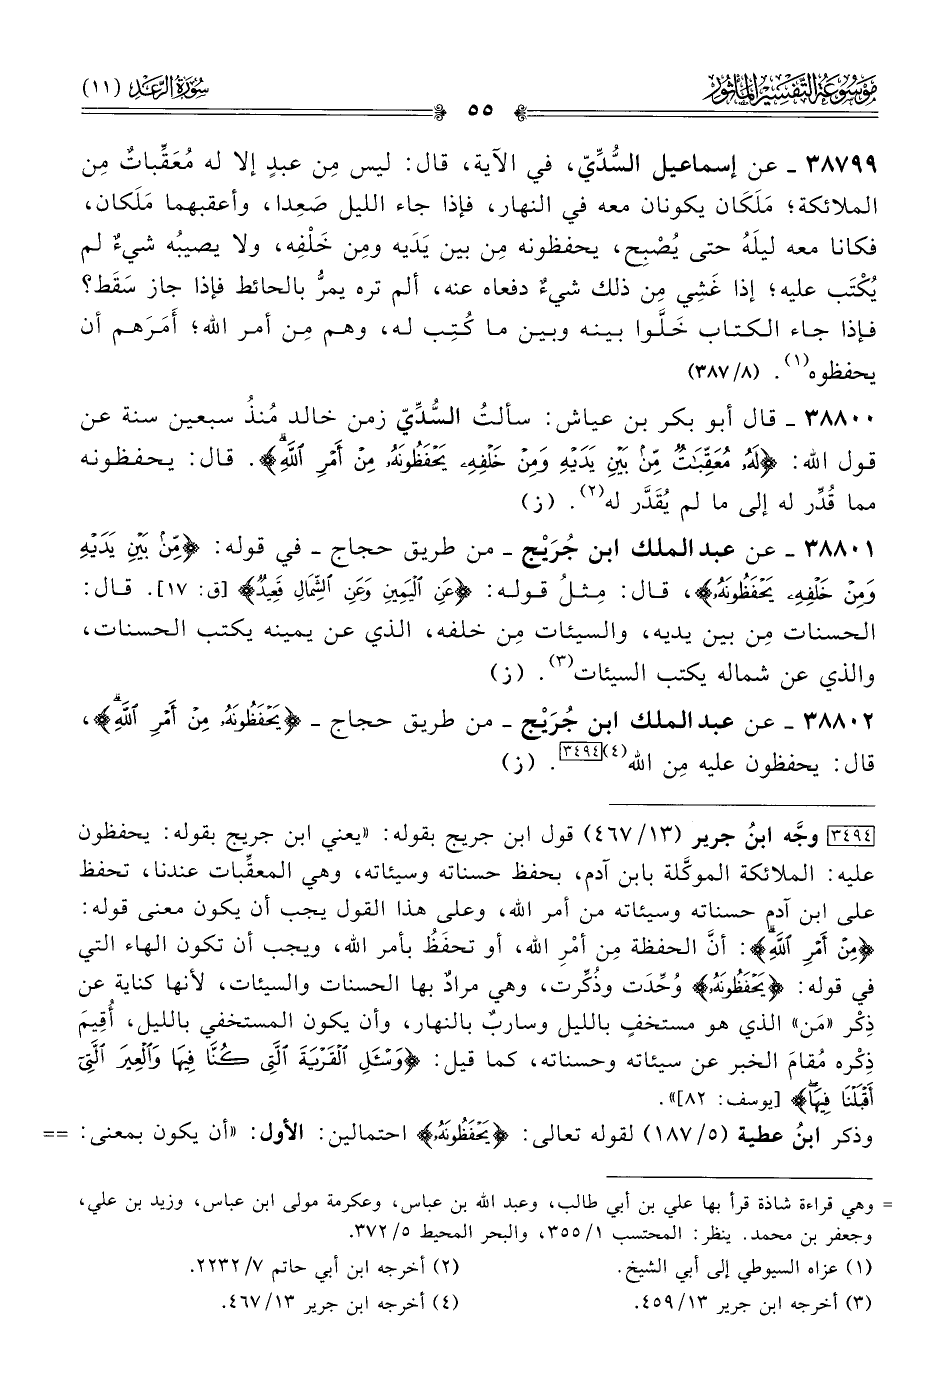 موسوعة التفسير المأثور
٥٥
سورة الرعد (١١)
٣٨٧٩٩ ـ عن إسماعيل السُّدِّيّ، في الآية، قال: ليس مِن عبدٍ إلا له مُعَقِّباتٌ مِن
الملائكة؛ مَلَكَان يكونان معه في النهار، فإذا جاء الليل صَعِدا، وأعقبهما مَلَكان،
فكانا معه ليلَهُ حتى يُصْبِح، يحفظونه مِن بين يَدَيه ومِن خَلْفِه، ولا يصيبُه شيءٌ لم
يُكْتَب عليه؛ إذا غَشِي مِن ذلك شيءٌ دفعاه عنه، ألم تره يمرُّ بالحائط فإذا جاز سَقَط؟
فإذا جاء الكتاب خَلَّوا بينه وبين ما كُتِب له، وهم مِن أمر الله؛ أَمَرَهم أن
يحفظوه(١). (٣٨٧/٨)
٣٨٨٠٠ ـ قال أبو بكر بن عياش: سألتُ السُّدِّيّ زمن خالد مُنذُ سبعين سنة عن
قول الله: ﴿لَهُۥ مُعَقِّبَٰتٌ مِّنۢ بَيْنِ يَدَيْهِ وَمِنْ خَلْفِهِۦ يَحْفَظُونَهُۥ مِنْ أَمْرِ ٱللَّهِۗ﴾. قال: يحفظونه
مما قُدِّر له إلى ما لم يُقَدَّر له(٢). (ز)
٣٨٨٠١ ـ عن عبد الملك ابن جُرَيْج ـ من طريق حجاج ـ في قوله: ﴿مِّنۢ بَيْنِ يَدَيْهِ
وَمِنْ خَلْفِهِۦ يَحْفَظُونَهُۥ﴾، قال: مِثلُ قوله: ﴿عَنِ ٱلْيَمِينِ وَعَنِ ٱلشِّمَالِ قَعِيدٌ﴾ [ق: ١٧]. قال:
الحسنات مِن بين يديه، والسيئات مِن خلفه، الذي عن يمينه يكتب الحسنات،
والذي عن شماله يكتب السيئات(٣). (ز)
٣٨٨٠٢ ـ عن عبد الملك ابن جُرَيْج ـ من طريق حجاج ـ ﴿يَحْفَظُونَهُۥ مِنْ أَمْرِ ٱللَّهِۗ﴾،
قال: يحفظون عليه مِن الله(٤)[٣٤٩٤]. (ز)
[٣٤٩٤] وجَّه ابنُ جرير (٤٦٧/١٣) قول ابن جريج بقوله: «يعني ابن جريج بقوله: يحفظون
عليه: الملائكة الموكَّلة بابن آدم، بحفظ حسناته وسيئاته، وهي المعقِّبات عندنا، تحفظ
على ابن آدم حسناته وسيئاته من أمر الله، وعلى هذا القول يجب أن يكون معنى قوله:
﴿مِنْ أَمْرِ ٱللَّهِۗ﴾: أنَّ الحفظة مِن أمْرِ الله، أو تحفَظُ بأمر الله، ويجب أن تكون الهاء التي
في قوله: ﴿يَحْفَظُونَهُۥ﴾ وُحِّدَت وذُكِّرت، وهي مرادٌ بها الحسنات والسيئات، لأنها كناية عن
ذِكْر «مَن» الذي هو مستخفٍ بالليل وساربٌ بالنهار، وأن يكون المستخفي بالليل، أُقِيمَ
ذِكْره مُقامَ الخبر عن سيئاته وحسناته، كما قيل: ﴿وَسْـَٔلِ ٱلْقَرْيَةَ ٱلَّتِى كُنَّا فِيهَا وَٱلْعِيرَ ٱلَّتِىٓ
أَقْبَلْنَا فِيهَاۖ﴾ [يوسف: ٨٢]».
وذكر ابنُ عطية (١٨٧/٥) لقوله تعالى: ﴿يَحْفَظُونَهُۥ﴾ احتمالين: الأول: «أن يكون بمعنى: ==
= وهي قراءة شاذة قرأ بها علي بن أبي طالب، وعبد الله بن عباس، وعكرمة مولى ابن عباس، وزيد بن علي،
وجعفر بن محمد. ينظر: المحتسب ٣٥٥/١، والبحر المحيط ٣٧٢/٥.
(١) عزاه السيوطي إلى أبي الشيخ. (٢) أخرجه ابن أبي حاتم ٢٢٣٢/٧.
(٣) أخرجه ابن جرير ٤٥٩/١٣. (٤) أخرجه ابن جرير ٤٦٧/١٣.